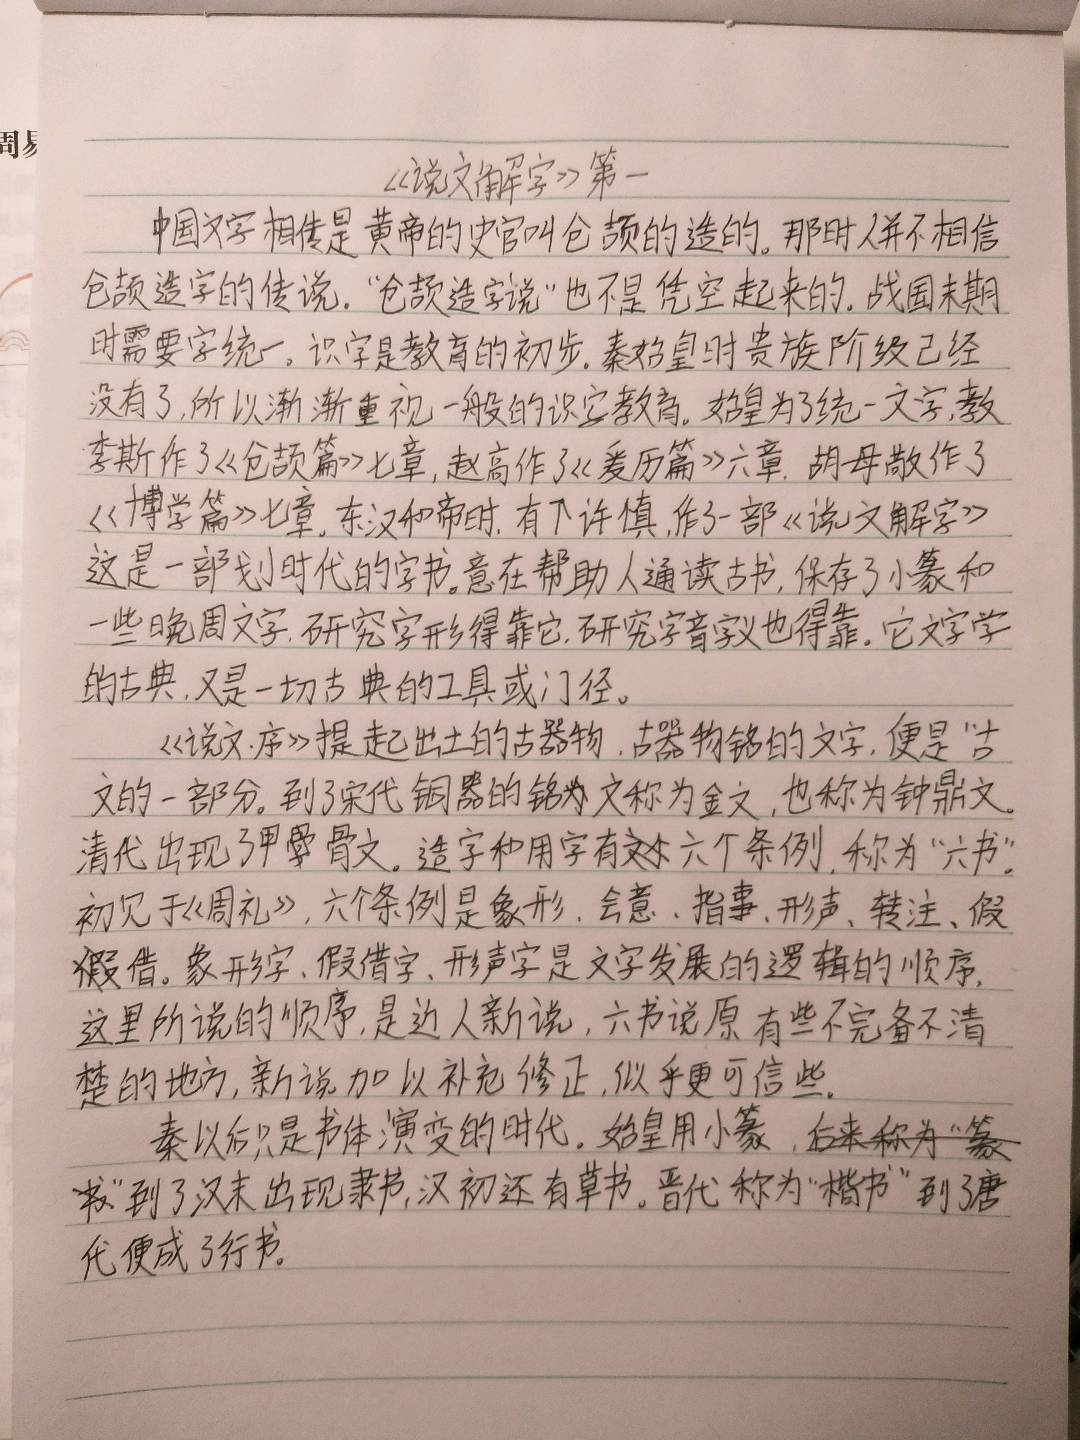 周易
《说文解字》第一
中国文字相传是黄帝的史官叫仓颉的造的。那时人并不相信
仓颉造字的传说。“仓颉造字说”也不是凭空起来的。战国末期
时需要字统一。识字是教育的初步。秦始皇时贵族阶级已经
没有了,所以渐渐重视一般的识字教育。始皇为了统一文字,教
李斯作了《仓颉篇》七章,赵高作了《爰历篇》六章.胡母敬作了
《博学篇》七章。东汉和帝时.有个许慎,作了一部《说文解字》
这是一部划时代的字书。意在帮助人通读古书,保存了小篆和
一些晚周文字.研究字形得靠它.研究字音字义也得靠。它文字学
的古典,又是一切古典的工具或门径。
《说文·序》提起出土的古器物,古器物铭的文字,便是“古
文的一部分。到了宋代铜器的铭文称为金文,也称为钟鼎文。
清代出现了甲骨文。造字和用字有六个条例,称为“六书”。
初见于《周礼》,六个条例是象形、会意、指事、形声、转注、假
假借。象形字、假借字、形声字是文字发展的逻辑的顺序,
这里所说的顺序,是近人新说,六书说原有些不完备不清
楚的地方,新说加以补充修正,似乎更可信些。
秦以后只是书体演变的时代。始皇用小篆,后来称为“篆
书”到了汉末出现隶书,汉初还有草书。晋代称为“楷书”到了唐
代便成了行书。